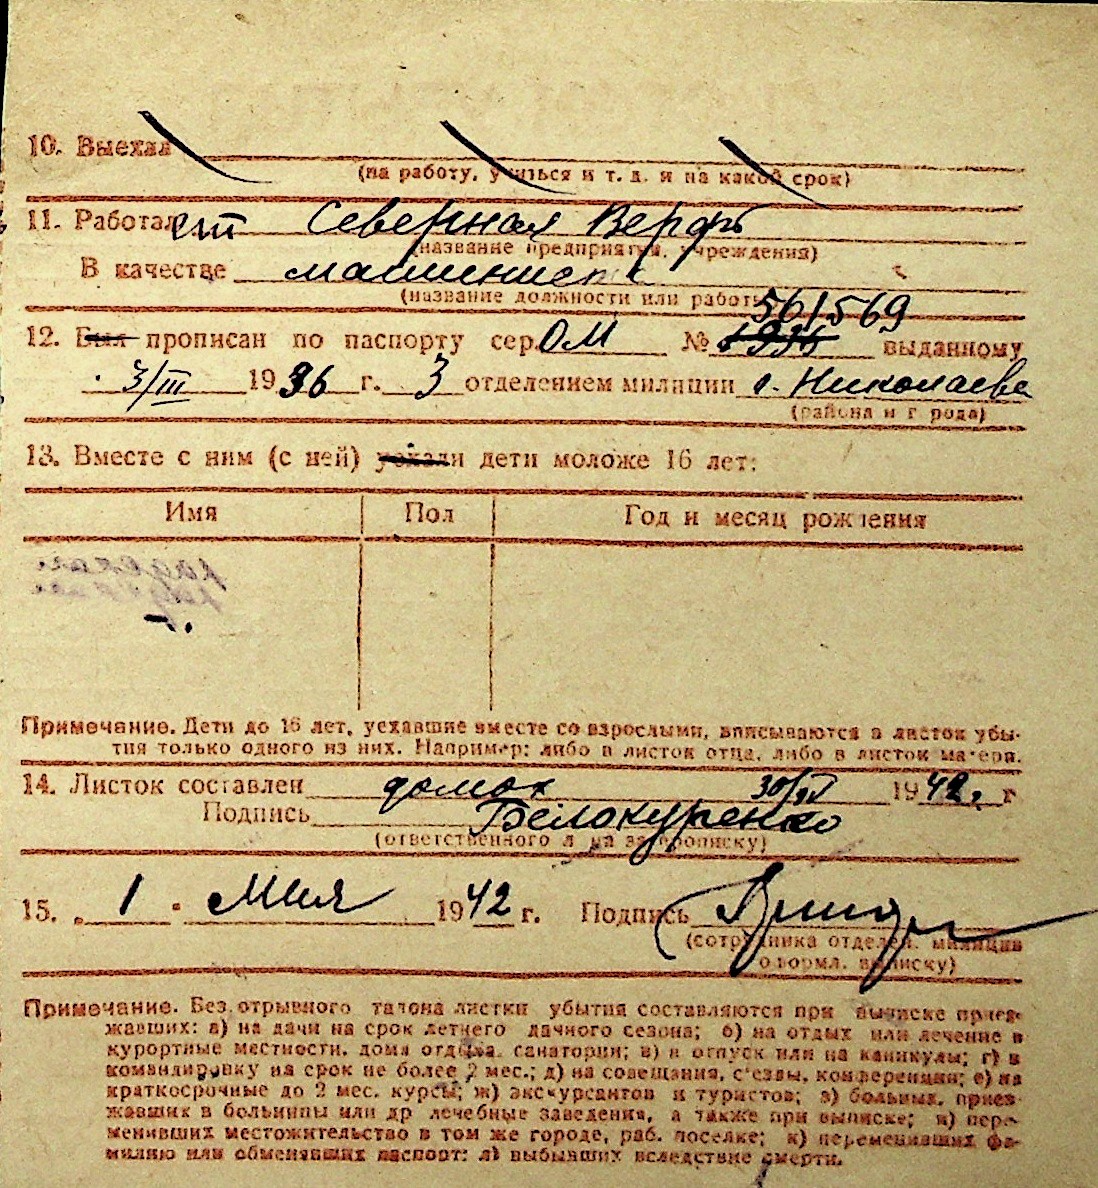 10. Выехал
(на работу, учиться и т. д. и на какой срок)
11. Работал Северная Верфь
(название предприятия, учреждения)
В качестве машиниста
(название должности или работы)
561569
12. Был прописан по паспорту сер. ОМ № выданному
3/III 1936 г. 3 отделением милиции г. Николаева
(района и города)
13. Вместе с ним (с ней) уехали дети моложе 16 лет:
Имя Пол Год и месяц рождения
Примечание. Дети до 16 лет, уехавшие вместе со взрослыми, вписываются в листок убы-
тия только одного из них. Например: либо в листок отца, либо в листок матери.
14. Листок составлен 30/ 1942. г.
Подпись Белокуренко
(ответственного л на за прописку)
15. „ 1 " Мая 1942 г. Подпись
(сотрудника отделен. милиции
оформл. выписку)
Примечание. Без отрывного талона листки убытия составляются при выписке приез-
жавших: а) на дачи на срок летнего дачного сезона; б) на отдых или лечение в
курортные местности, дома отдыха, санатории; в) в отпуск или на каникулы; г) в
командировку на срок не более 2 мес.; д) на совещания, с'езды, конференции; е) на
краткосрочные до 2 мес. курсы; ж) экскурсантов и туристов; з) больных, приез-
жавших в больницы или др лечебные заведения, а также при выписке; и) пере-
менивших местожительство в том же городе, раб. поселке; к) переменивших фа-
милию или обменявших паспорт: л) выбывших вследствие смерти.